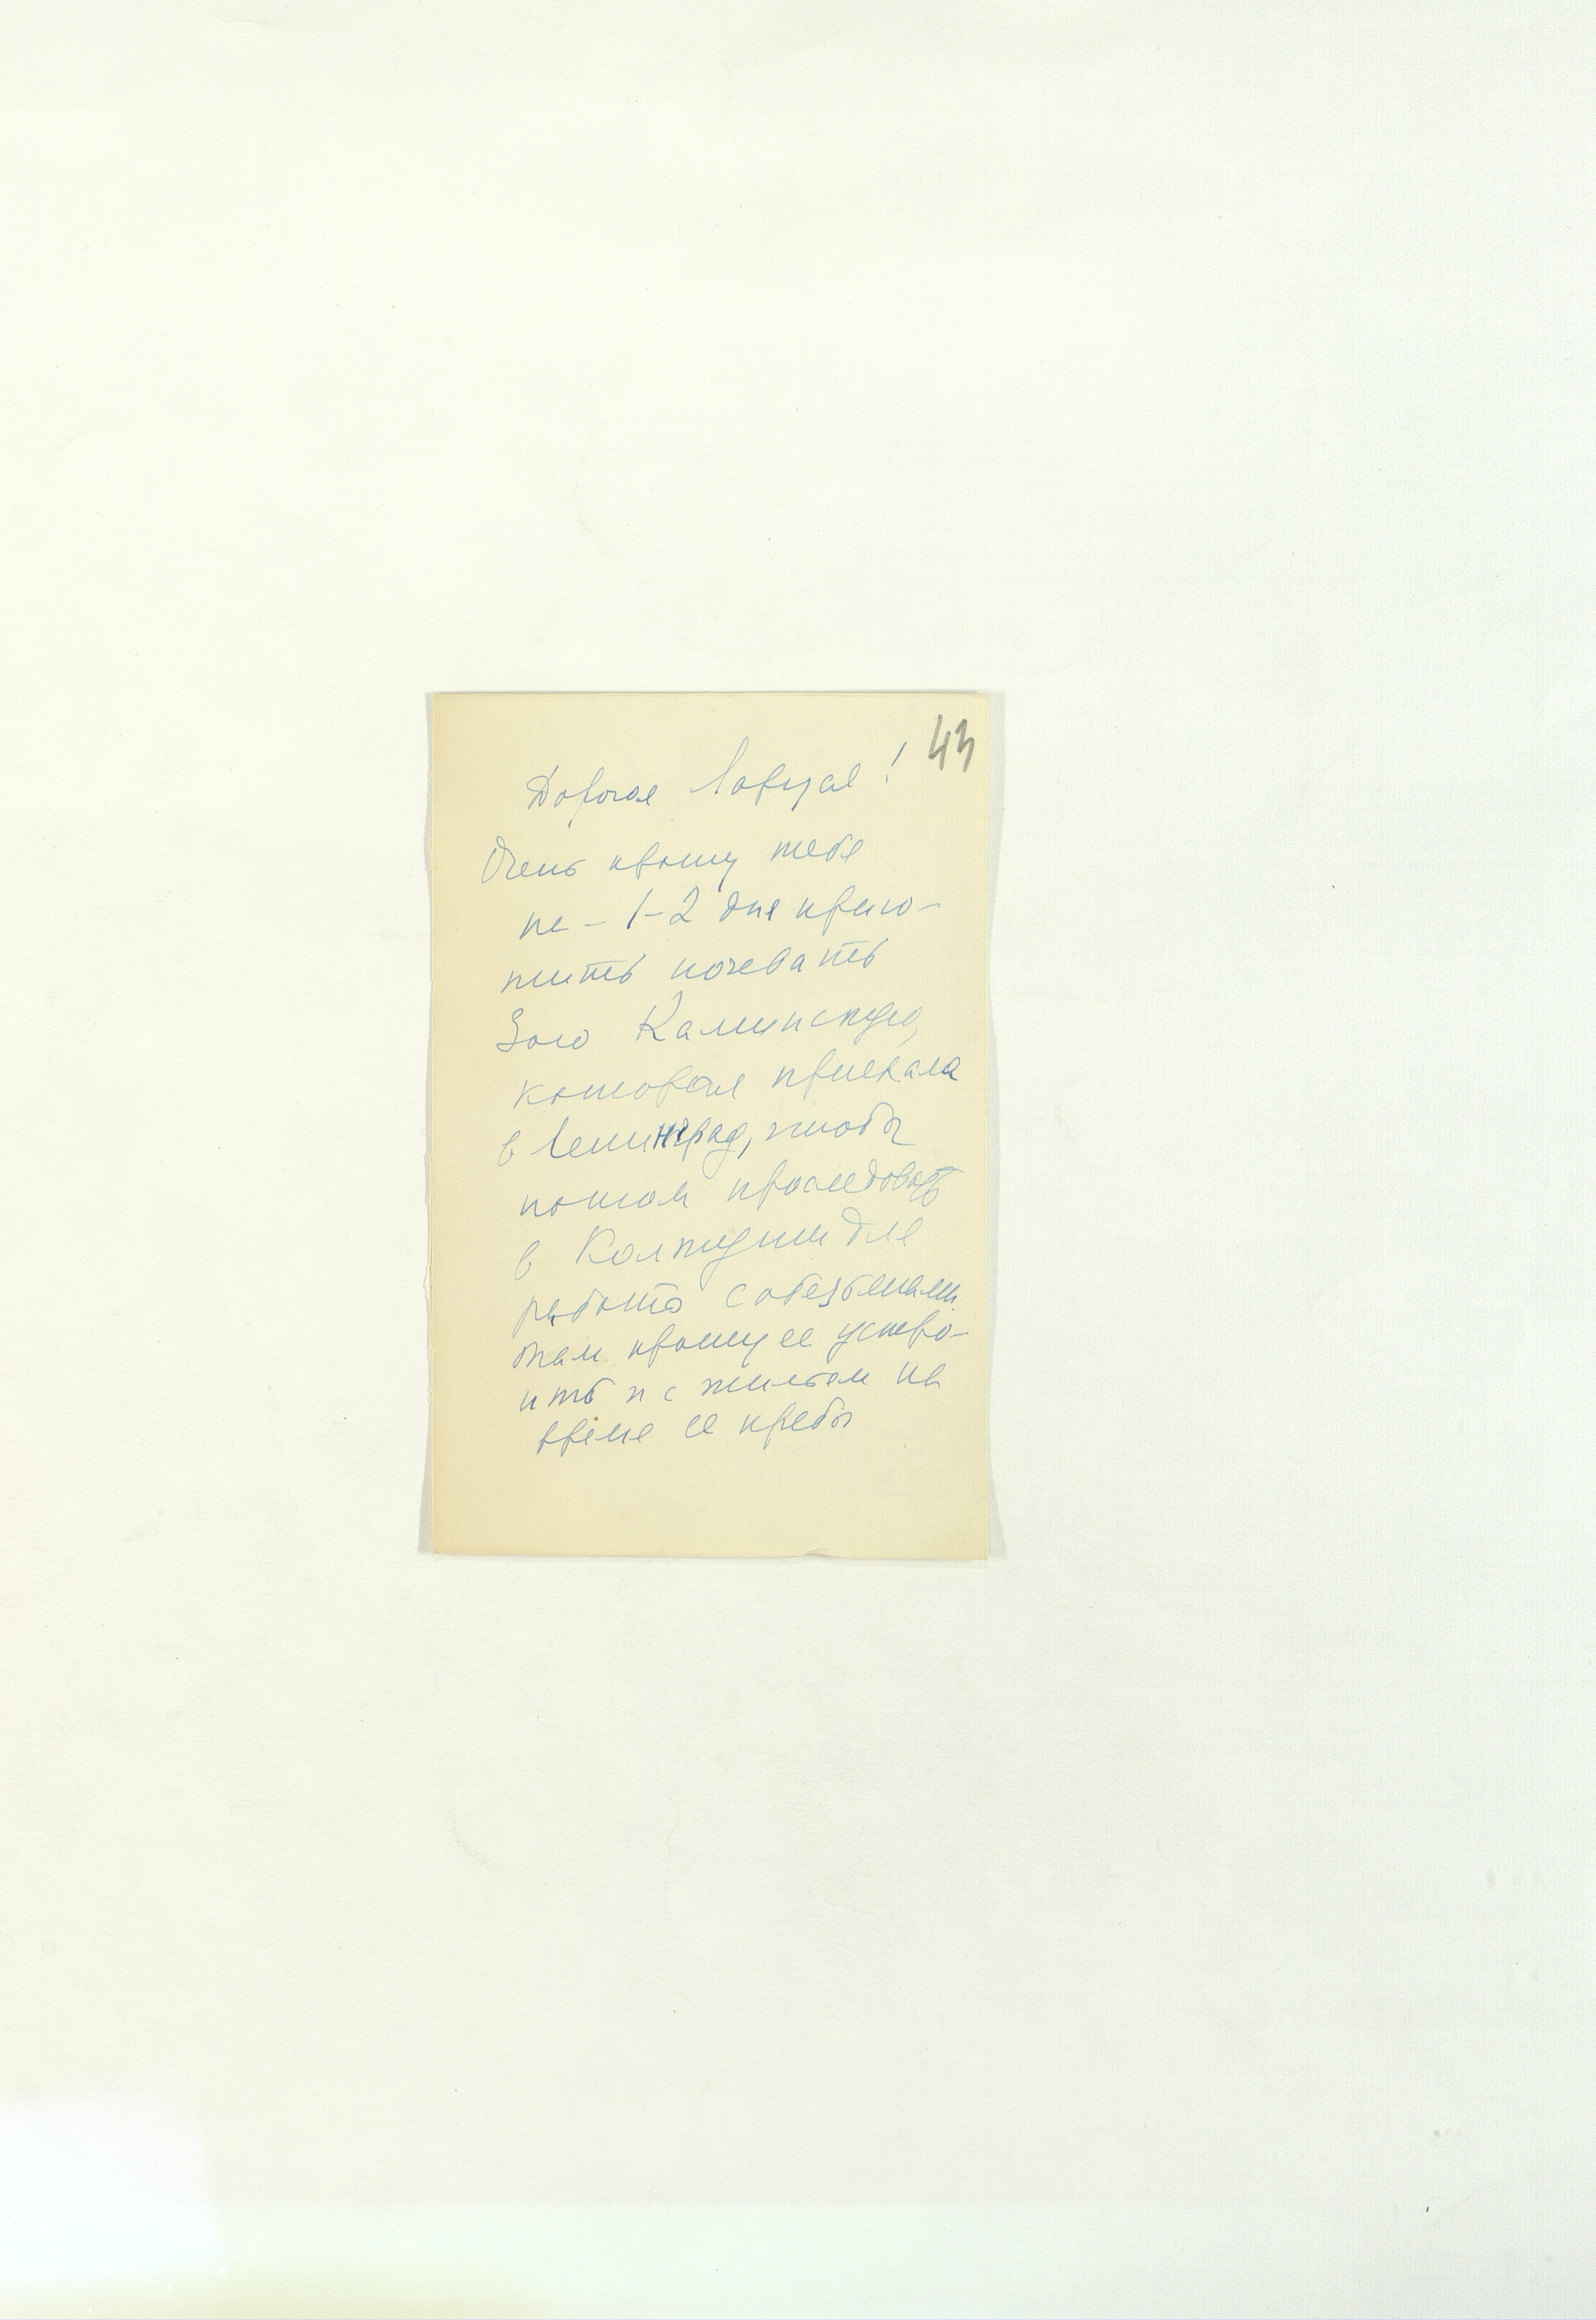 43
Дорогая Лавруся!
Очень прошу тебя
на - 1-2 дня прию-
тить ночевать
Зою Калинскую,
которая приехала
в Ленинград, чтобы
потом проследовать
в Колтуши для
работы с обезьянами.
Там прошу ее устро-
ить и с жильем на
время ее пребы